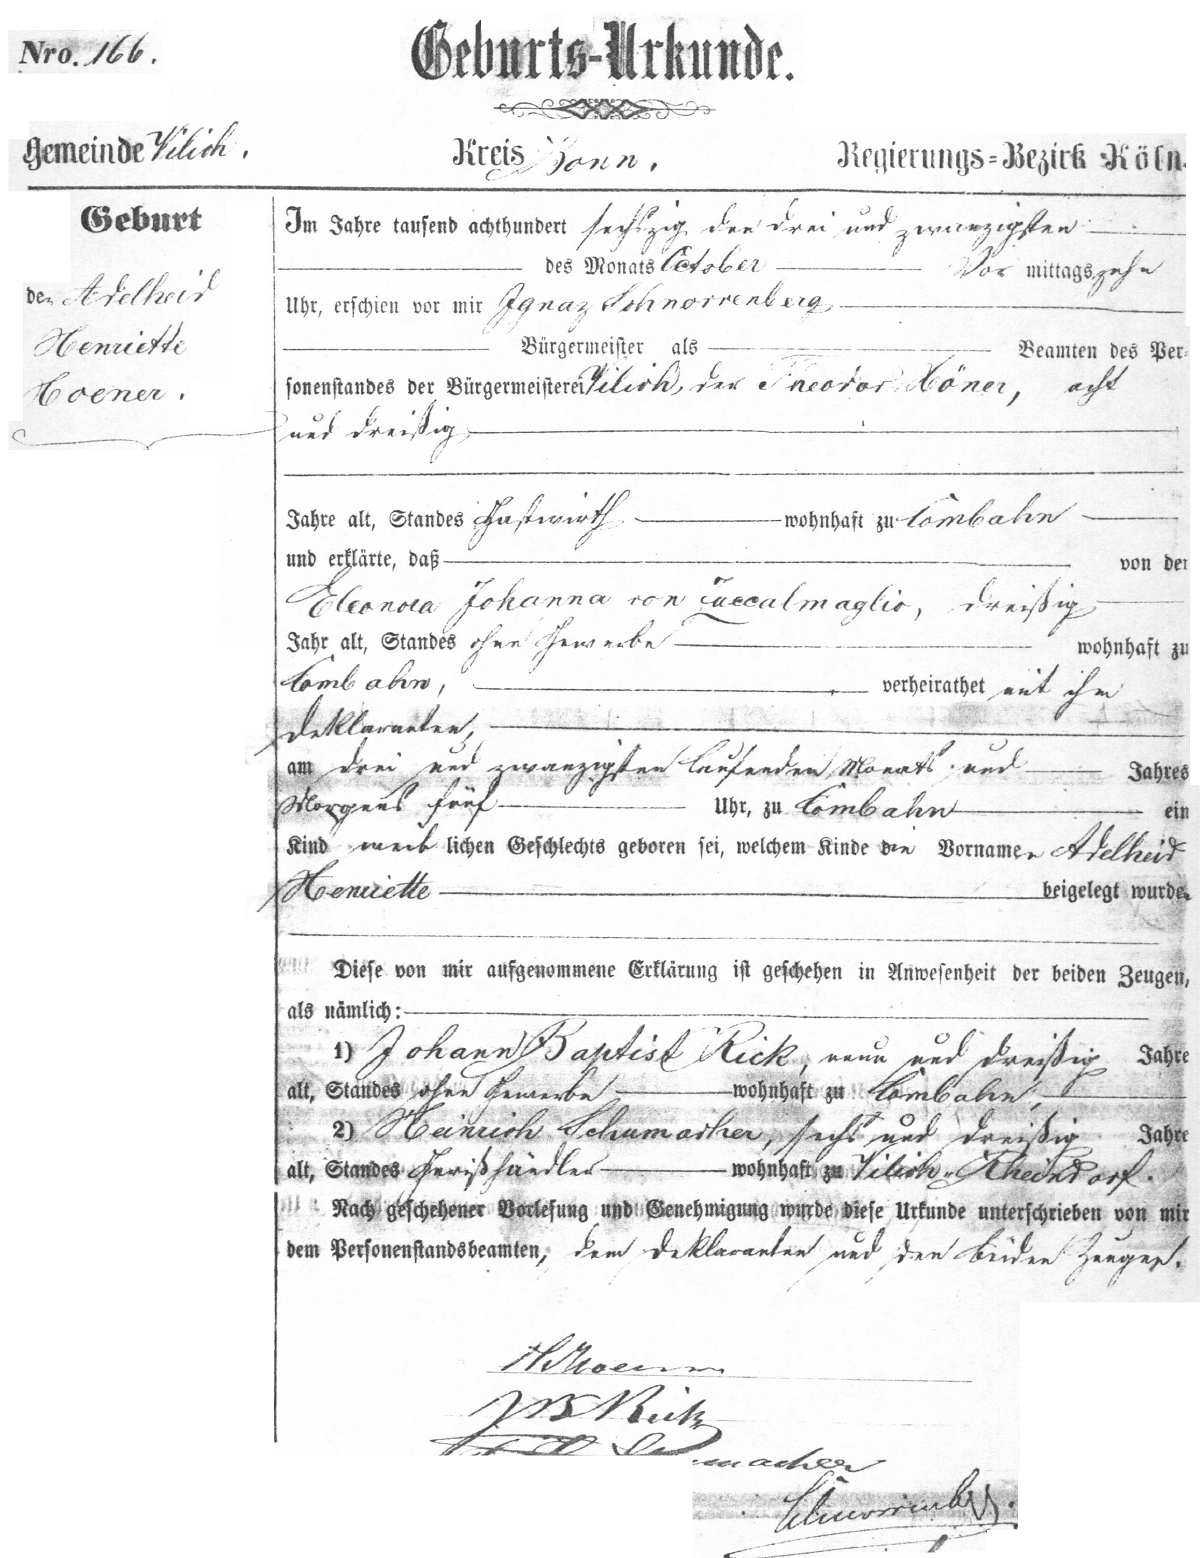 Nro. 166.
Geburts-Urkunde.
Gemeinde Vilich. Kreis Bonn. Regierungs-Bezirk Köln.
Geburt
der Adelheid
Henriette
Hoener.
Im Jahre tausend achthundert sechszig den drei und zwanzigsten
des Monats October Vor mittags zehn
Uhr, erschien vor mir Ignaz Schnorrenberg
Bürgermeister als Beamten des Per-
sonenstandes der Bürgermeisterei Vilich, der Theodor Höner, acht
und dreißig
Jahre alt, Standes Gastwirth wohnhaft zu Combahn
und erklärte, daß von der
Eleonora Johanna von Zuccalmaglio, dreißig
Jahr alt, Standes ohne Gewerbe wohnhaft zu
Combahn, verheirathet mit ihm
Deklaranten,
am drei und zwanzigsten laufenden Monats und Jahres
Morgens fünf Uhr, zu Combahn ein
Kind weib lichen Geschlechts geboren sei, welchem Kinde die Vornamen Adelheid
Henriette beigelegt wurden
Diese von mir aufgenommene Erklärung ist geschehen in Anwesenheit der beiden Zeugen,
als nämlich:
1) Johann Baptist Rick, neun und dreißig Jahre
alt, Standes ohne Gewerbe wohnhaft zu Combahn,
2) Heinrich Schumacher, sechs und dreißig Jahre
alt, Standes wohnhaft zu Vilich-Rheindorf.
Nach geschehener Vorlesung und Genehmigung wurde diese Urkunde unterschrieben von mir
dem Personenstandsbeamten, dem Deklaranten und den beiden Zeugen.
Hoener
JB Rick
Schumacher
Schnorrenberg.